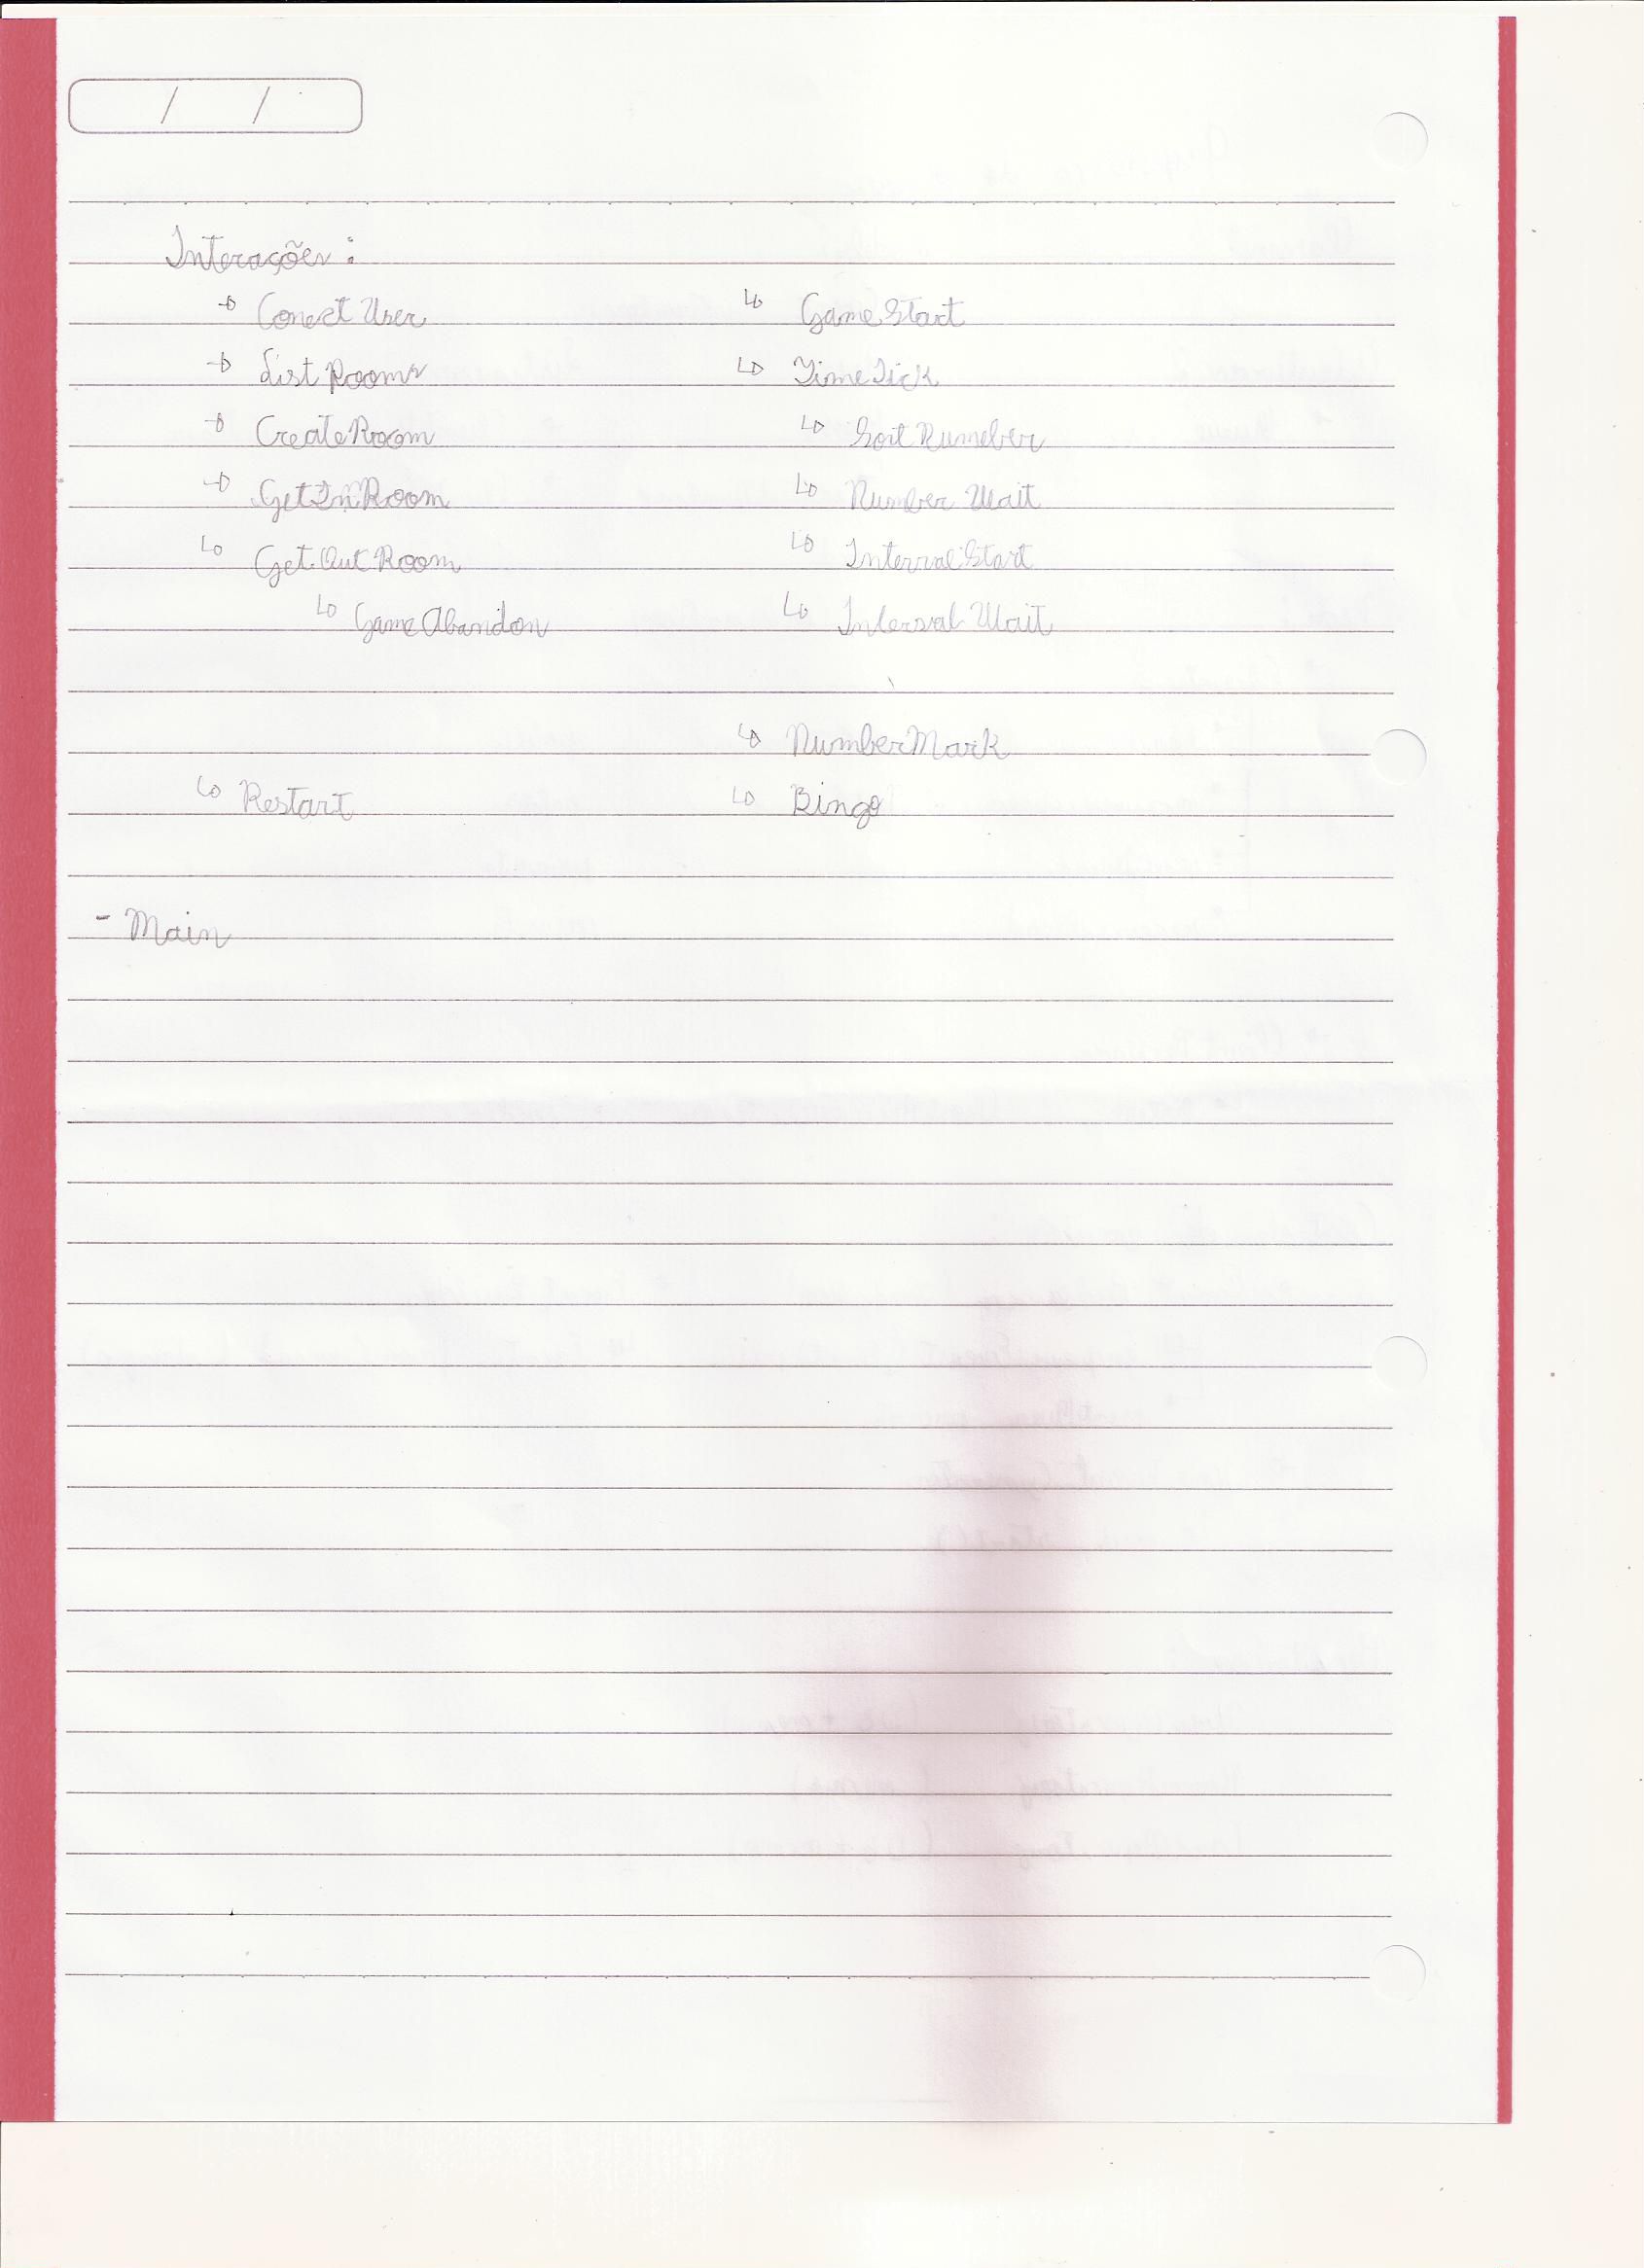 Interações:
→ Conect User
→ List Rooms
→ CreateRoom
→ GetInRoom
↳ GetOutRoom
↳ GameAbandon
↳ Restart
↳ GameStart
↳ TimeTick
↳ Sort Rumeber
↳ Number Wait
↳ IntervalStart
↳ Interval Wait
↳ NumberMark
↳ Bingo
- Main